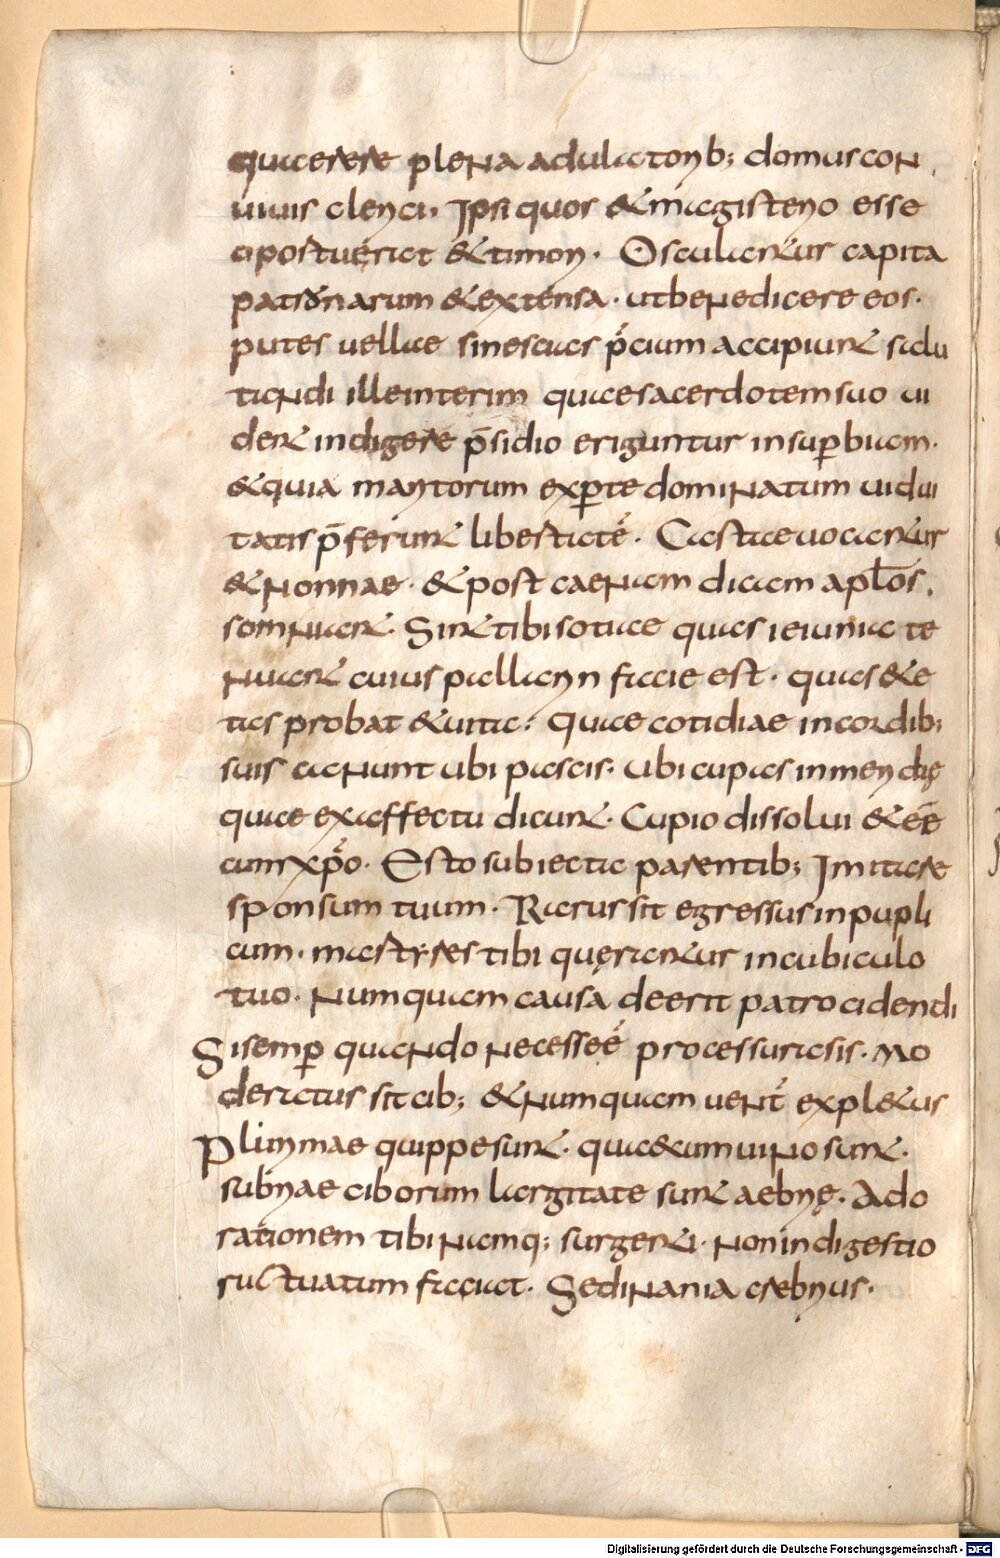 quaerere plena adulatorib; domus con
uiuis clerici. Ipsi quos & magisterio esse
oportuerat & timori. Osculantur capita
patronarum & extensa. ut benedicere eos.
putes uellae sinescias p̄cium accipiunt salu
tandi ille interim quae sacerdotem suo ui
dent indigere p̄sidio eriguntur in superbiam.
& quia maritorum experte dominatum uidui
tatis p̄ferunt libertatē. Castae uocantur
& nonnae. & post caenam diciam apl̄os.
somniant. Sint tibi sotiae quas ieiunia te
nuant cuius pallier in facie est. quas & e
tas probat & uita; Quae cotidiae in cordib;
suis canunt ubi pascis. Ubi cupas in meridię
quae ex affectu dicunt. Cupio dissolui & eē
cum xp̄o. Esto subiecta parentib; Imitare
sponsum tuum. Rarus sit egressus in pupli
cum. martyres tibi querantur in cubiculo
tuo. Numquam causa deerit patrocidendi
Si semp quando necesseē processura sis. Mo
deratus sit cib; & numquam uent̄ expletus
Plurimae quippe sunt. quae cum uino sunt.
subriae ciborum largitate sunt aebrię. Ad o
rationem tibi namq; surgenti. non indigestio
ructuatum faciat. Sed inania aebrius.
Digitalisierung gefördert durch die Deutsche Forschungsgemeinschaft - DFG